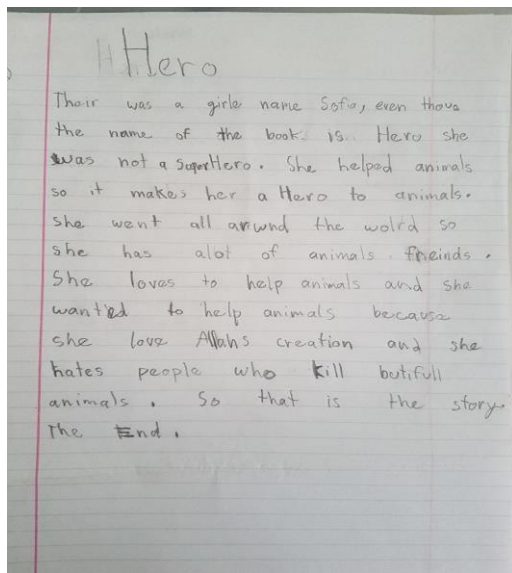 Hero
Their was a girle name Sofia, even thoua
the name of the book is Hero she
was not a superHero. She helped animals
so it makes her a Hero to animals.
she went all arwnd the wolrd so
she has alot of animals freinds.
She loves to help animals and she
wantied to help animals because
she love Allahs creation and she
hates people who kill butifull
animals. So that is the story
The End.